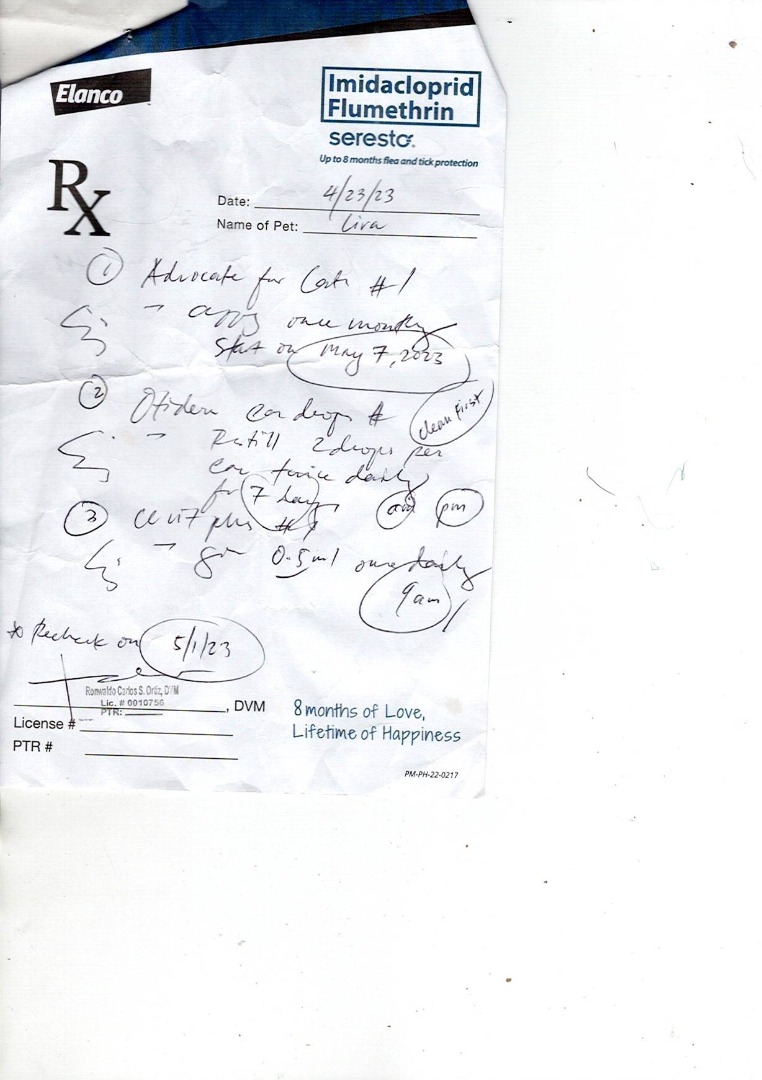 Elanco
Imidacloprid
Flumethrin
seresto
Up to 8 months flea and tick protection
Rx
Date: 4/23/23
Name of Pet: Liva
① Advocate for Cats #1
once monthly
Start on May 7, 2023
② ear drops #
clean first
2 drops per
ear twice daily
for 7 days am pm
③ plus #1
0.5ml once daily
9am
Recheck on 5/1/23
Ronwaldo Carlos S. Ortiz, DVM
Lic. # 0010756
PTR:
, DVM
License #
PTR #
8 months of Love,
Lifetime of Happiness
PM-PH-22-0217